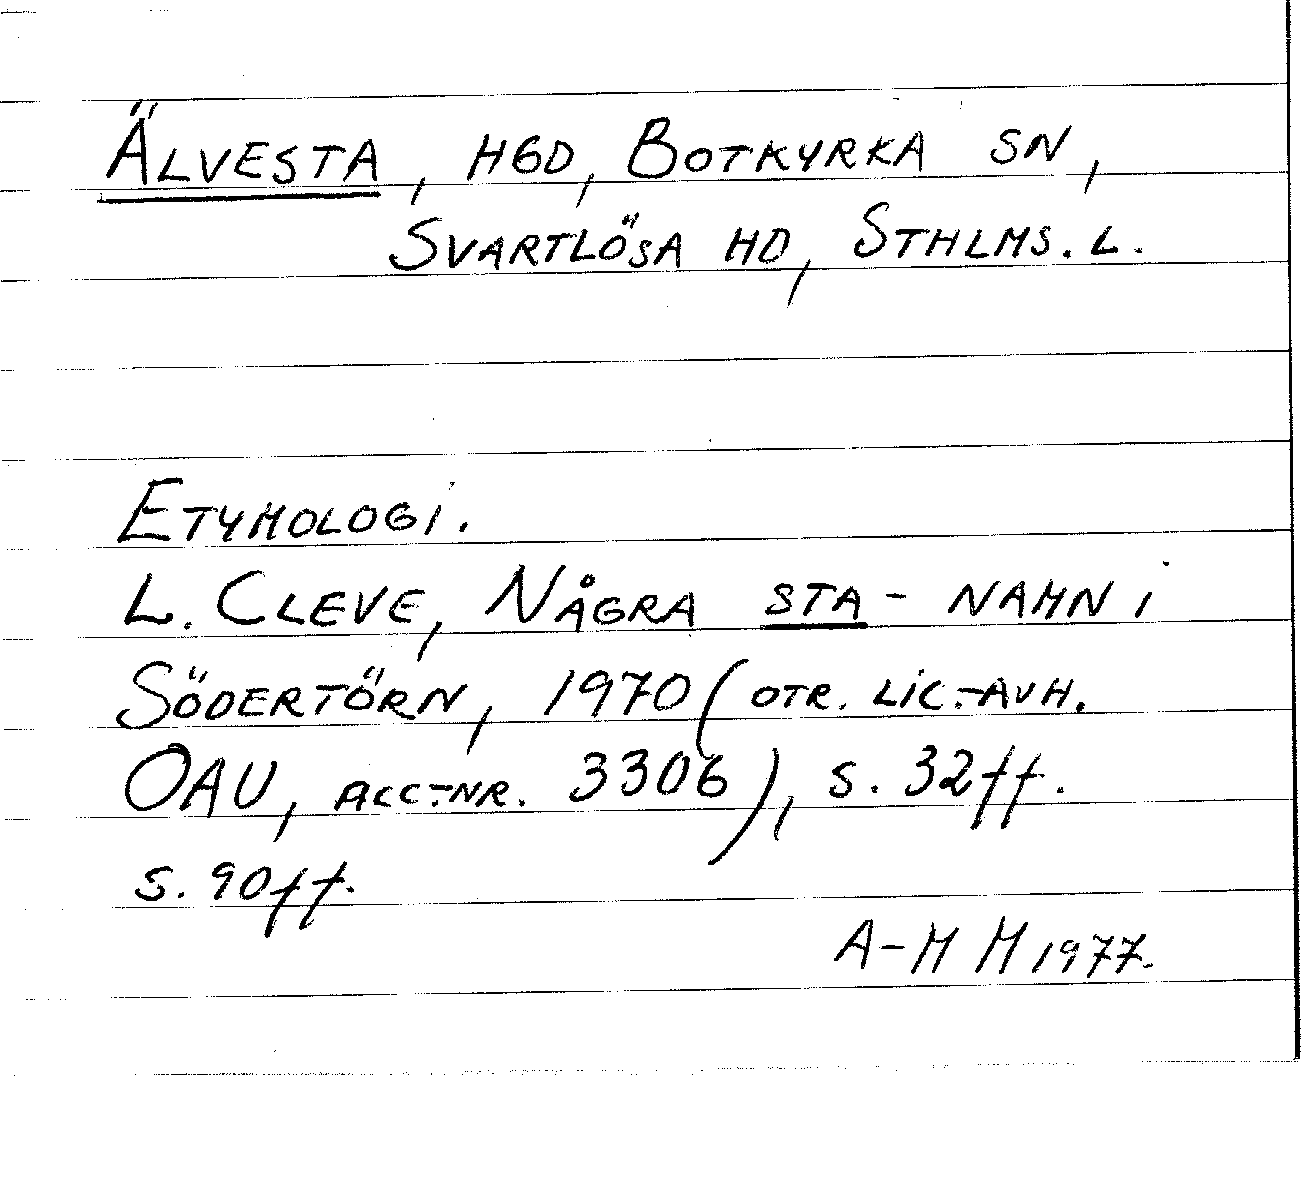 ÄLVESTA, HGD, BOTKYRKA SN,
SVARTLÖSA HD, STHLMS. L.
ETYMOLOGI.
L. CLEVE, NÅGRA STA- NAMN I
SÖDERTÖRN, 1970 (OTR. LIC.-AVH.
OAU, ACC.-NR. 3306), S. 32 ff.
S. 90 ff.
A-M M 1977.